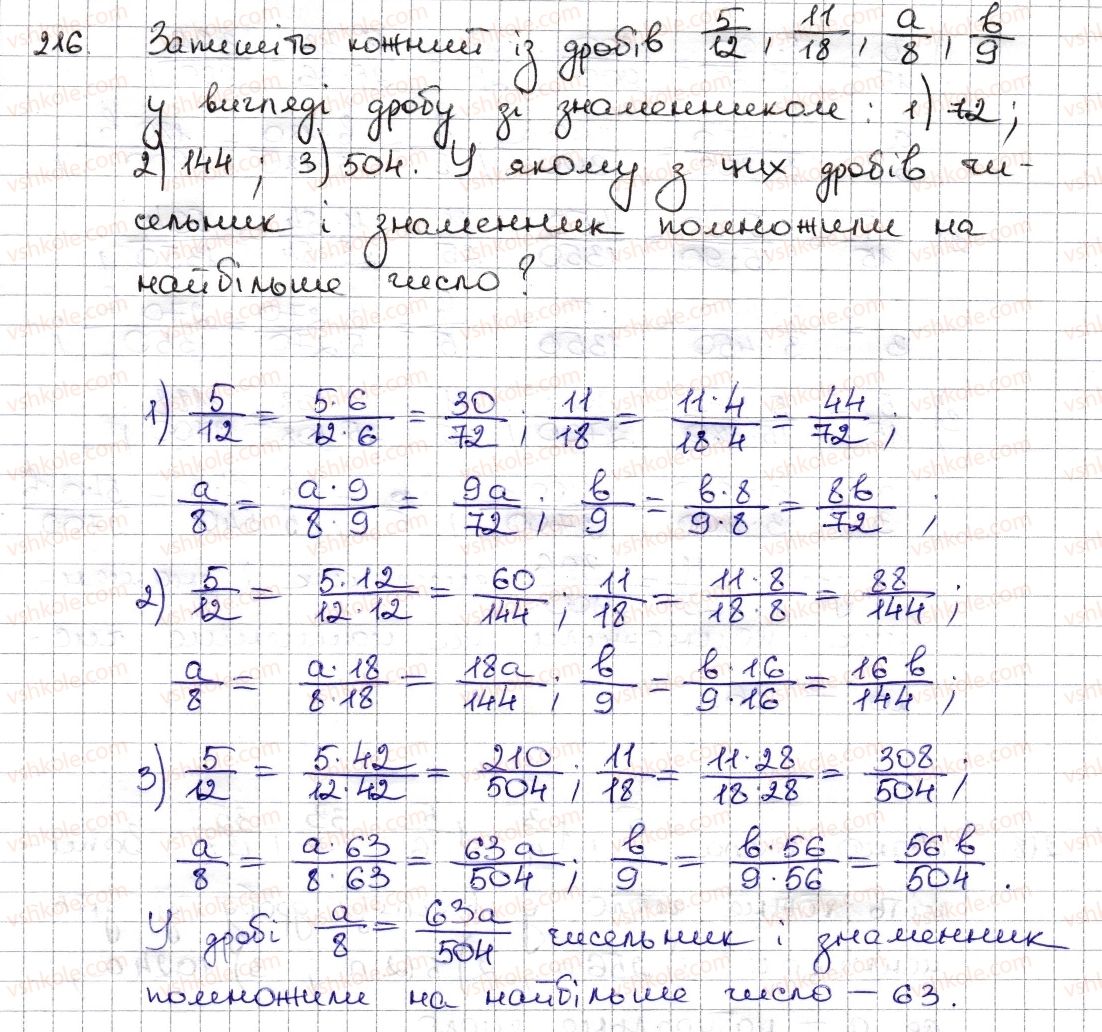 216. Запишіть кожний із дробів 5/12, 11/18, a/8, b/9
у вигляді дробу зі знаменником: 1) 72;
2) 144; 3) 504. У якому з цих дробів чи-
сельник і знаменник помножили на
найбільше число?
1) 5/12 = 5·6/12·6 = 30/72; 11/18 = 11·4/18·4 = 44/72;
a/8 = a·9/8·9 = 9a/72; b/9 = b·8/9·8 = 8b/72;
2) 5/12 = 5·12/12·12 = 60/144; 11/18 = 11·8/18·8 = 88/144;
a/8 = a·18/8·18 = 18a/144; b/9 = b·16/9·16 = 16b/144;
3) 5/12 = 5·42/12·42 = 210/504; 11/18 = 11·28/18·28 = 308/504;
a/8 = a·63/8·63 = 63a/504; b/9 = b·56/9·56 = 56b/504.
У дробі a/8 = 63a/504 чисельник і знаменник
помножили на найбільше число – 63.